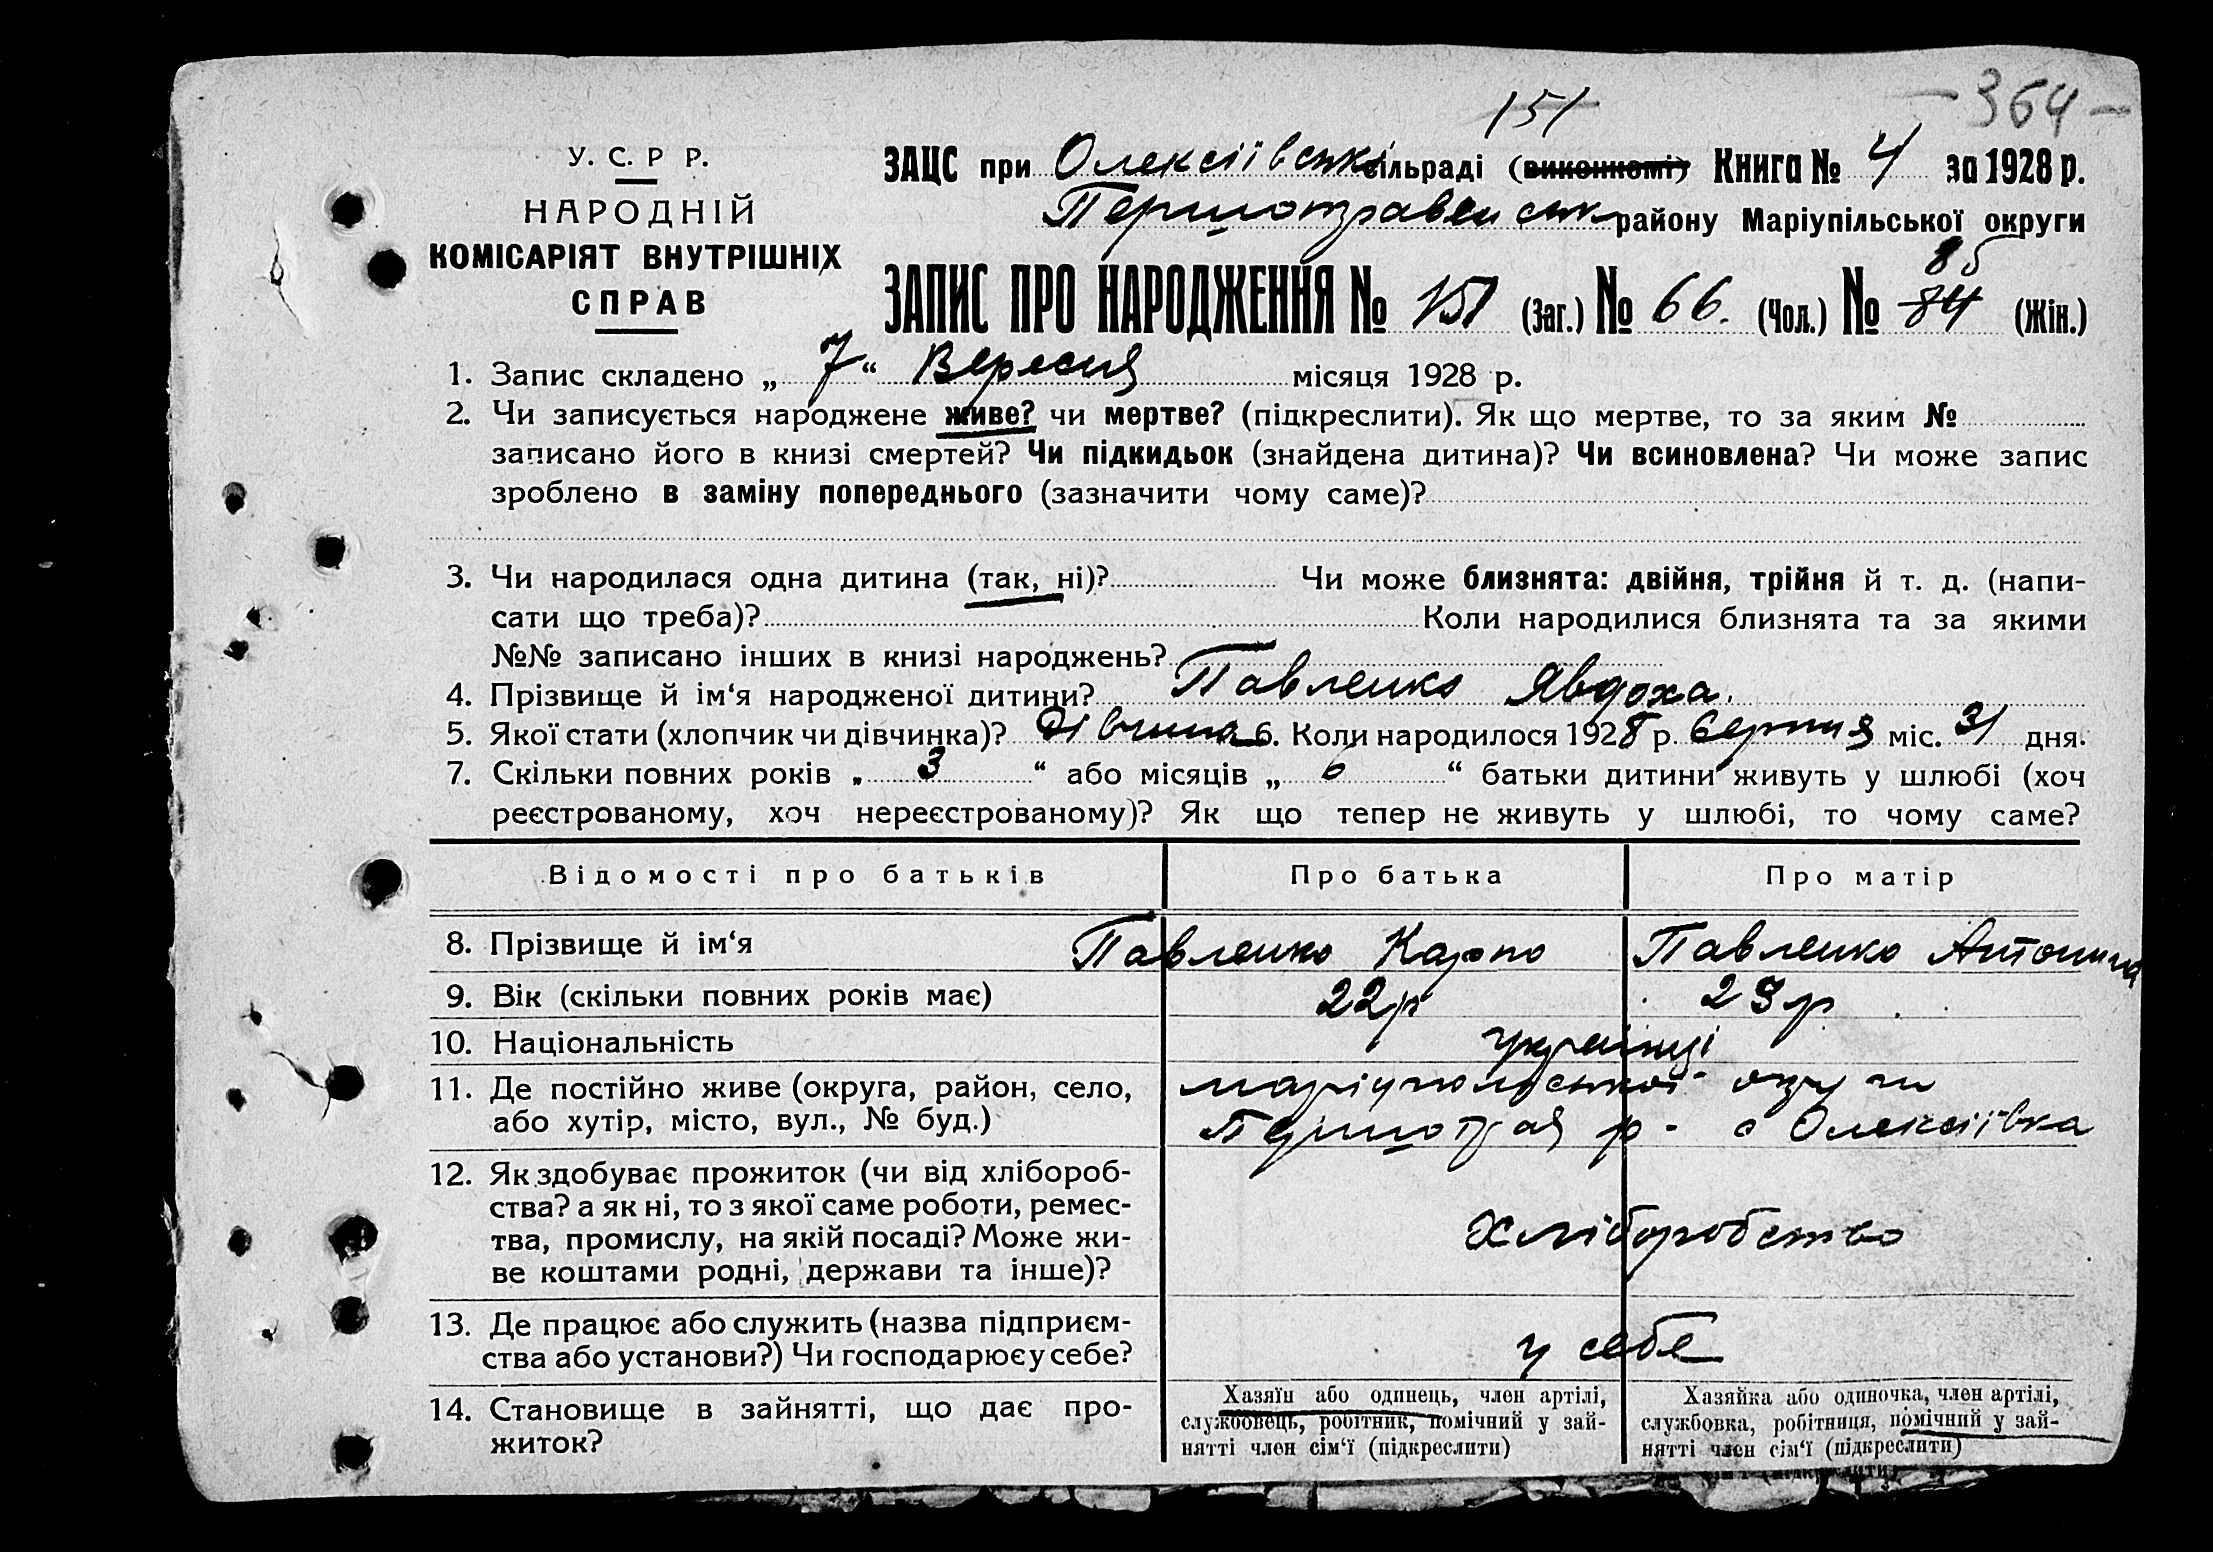 - 364 -
151
У. С. Р Р.
НАРОДНІЙ
КОМІСАРІЯТ ВНУТРІШНІХ
СПРАВ
ЗАЦС при Олексіївській сільраді (виконкомі) Книга № 4 за 1928 р.
Першотравенськ району Маріупільської округи
85
ЗАПИС ПРО НАРОДЖЕННЯ № 151 (Заг.) № 66. (Чол.) № 84 (Жін.)
1. Запис складено „ 7 “ Вересня місяця 1928 р.
2. Чи записується народжене живе? чи мертве? (підкреслити). Як що мертве, то за яким №
записано його в книзі смертей? Чи підкидьок (знайдена дитина)? Чи всиновлена? Чи може запис
зроблено в заміну попереднього (зазначити чому саме)?
3. Чи народилася одна дитина (так, ні)? Чи може близнята: двійня, трійня й т. д. (напи-
сати що треба)? Коли народилися близнята та за якими
№№ записано інших в книзі народжень?
4. Прізвище й ім‘я народженої дитини? Павленко Явдоха.
5. Якої стати (хлопчик чи дівчинка)? Дівчина 6. Коли народилося 1928 р. Серпня міс. 31 дня.
7. Скільки повних років „ 3 “ або місяців „ 6 “ батьки дитини живуть у шлюбі (хоч
реєстрованому, хоч нереєстрованому)? Як що тепер не живуть у шлюбі, то чому саме?
Відомості про батьків Про батька Про матір
8. Прізвище й ім‘я Павленко Карпо Павленко Антонина
9. Вік (скільки повних років має) 22р 23р
10. Національність українці
11. Де постійно живе (округа, район, село, маріупольської округи
або хутір, місто, вул., № буд.) Першотрав р - с Олексіївка
12. Як здобуває прожиток (чи від хлібороб-
ства? а як ні, то з якої саме роботи, ремес-
тва, промислу, на якій посаді? Може жи- Хліборобство
ве коштами родні, держави та інше)?
13. Де працює або служить (назва підприєм-
ства або установи?) Чи господарює у себе? у себе
14. Становище в зайнятті, що дає про-
житок?
Хазяїн або одинець, член артілі,
службовець, робітник, помічний у зай-
нятті член сім‘ї (підкреслити)
Хазяйка або одиночка, член артілі,
службовка, робітниця, помічний у зай-
нятті член сім‘ї (підкреслити)